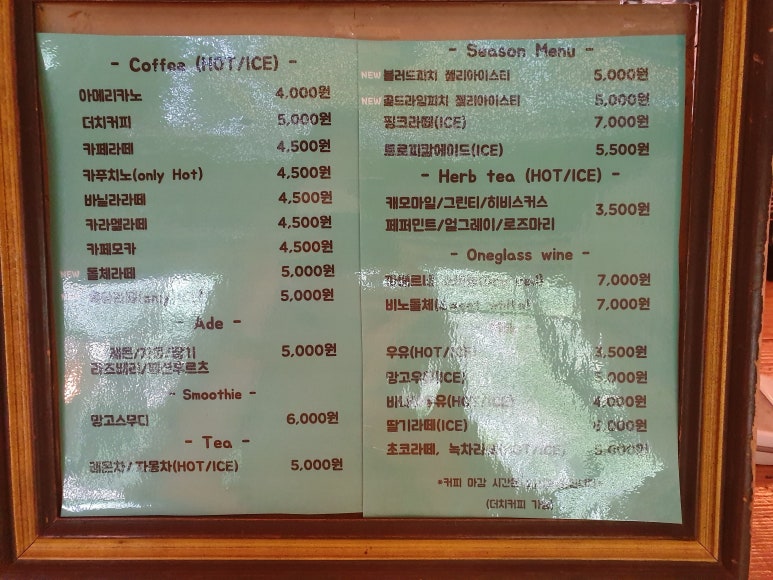 - Coffee (HOT/ICE) -
아메리카노 4,000원
더치커피 5,000원
카페라떼 4,500원
카푸치노(only Hot) 4,500원
바닐라라떼 4,500원
카라멜라떼 4,500원
카페모카 4,500원
NEW 돌체라떼 5,000원
5,000원
- Ade -
5,000원
라즈베리/패션후르츠
- Smoothie -
망고스무디 6,000원
- Tea -
레몬차/자몽차(HOT/ICE) 5,000원
- Season Menu -
NEW 블러드피치 젤리아이스티 5,000원
NEW 골드라임피치 젤리아이스티 5,000원
핑크라떼(ICE) 7,000원
트로피칼에이드(ICE) 5,500원
- Herb tea (HOT/ICE) -
캐모마일/그린티/히비스커스
페퍼민트/얼그레이/로즈마리 3,500원
- Oneglass wine -
7,000원
비노돌체(sweet white) 7,000원
우유(HOT/ICE) 3,500원
망고우유(ICE) 5,000원
바나나우유(HOT/ICE) 4,000원
딸기라떼(ICE)
초코라떼, 녹차라떼(HOT/ICE) 5,000원
*커피 마감 시간은
(더치커피 가능)